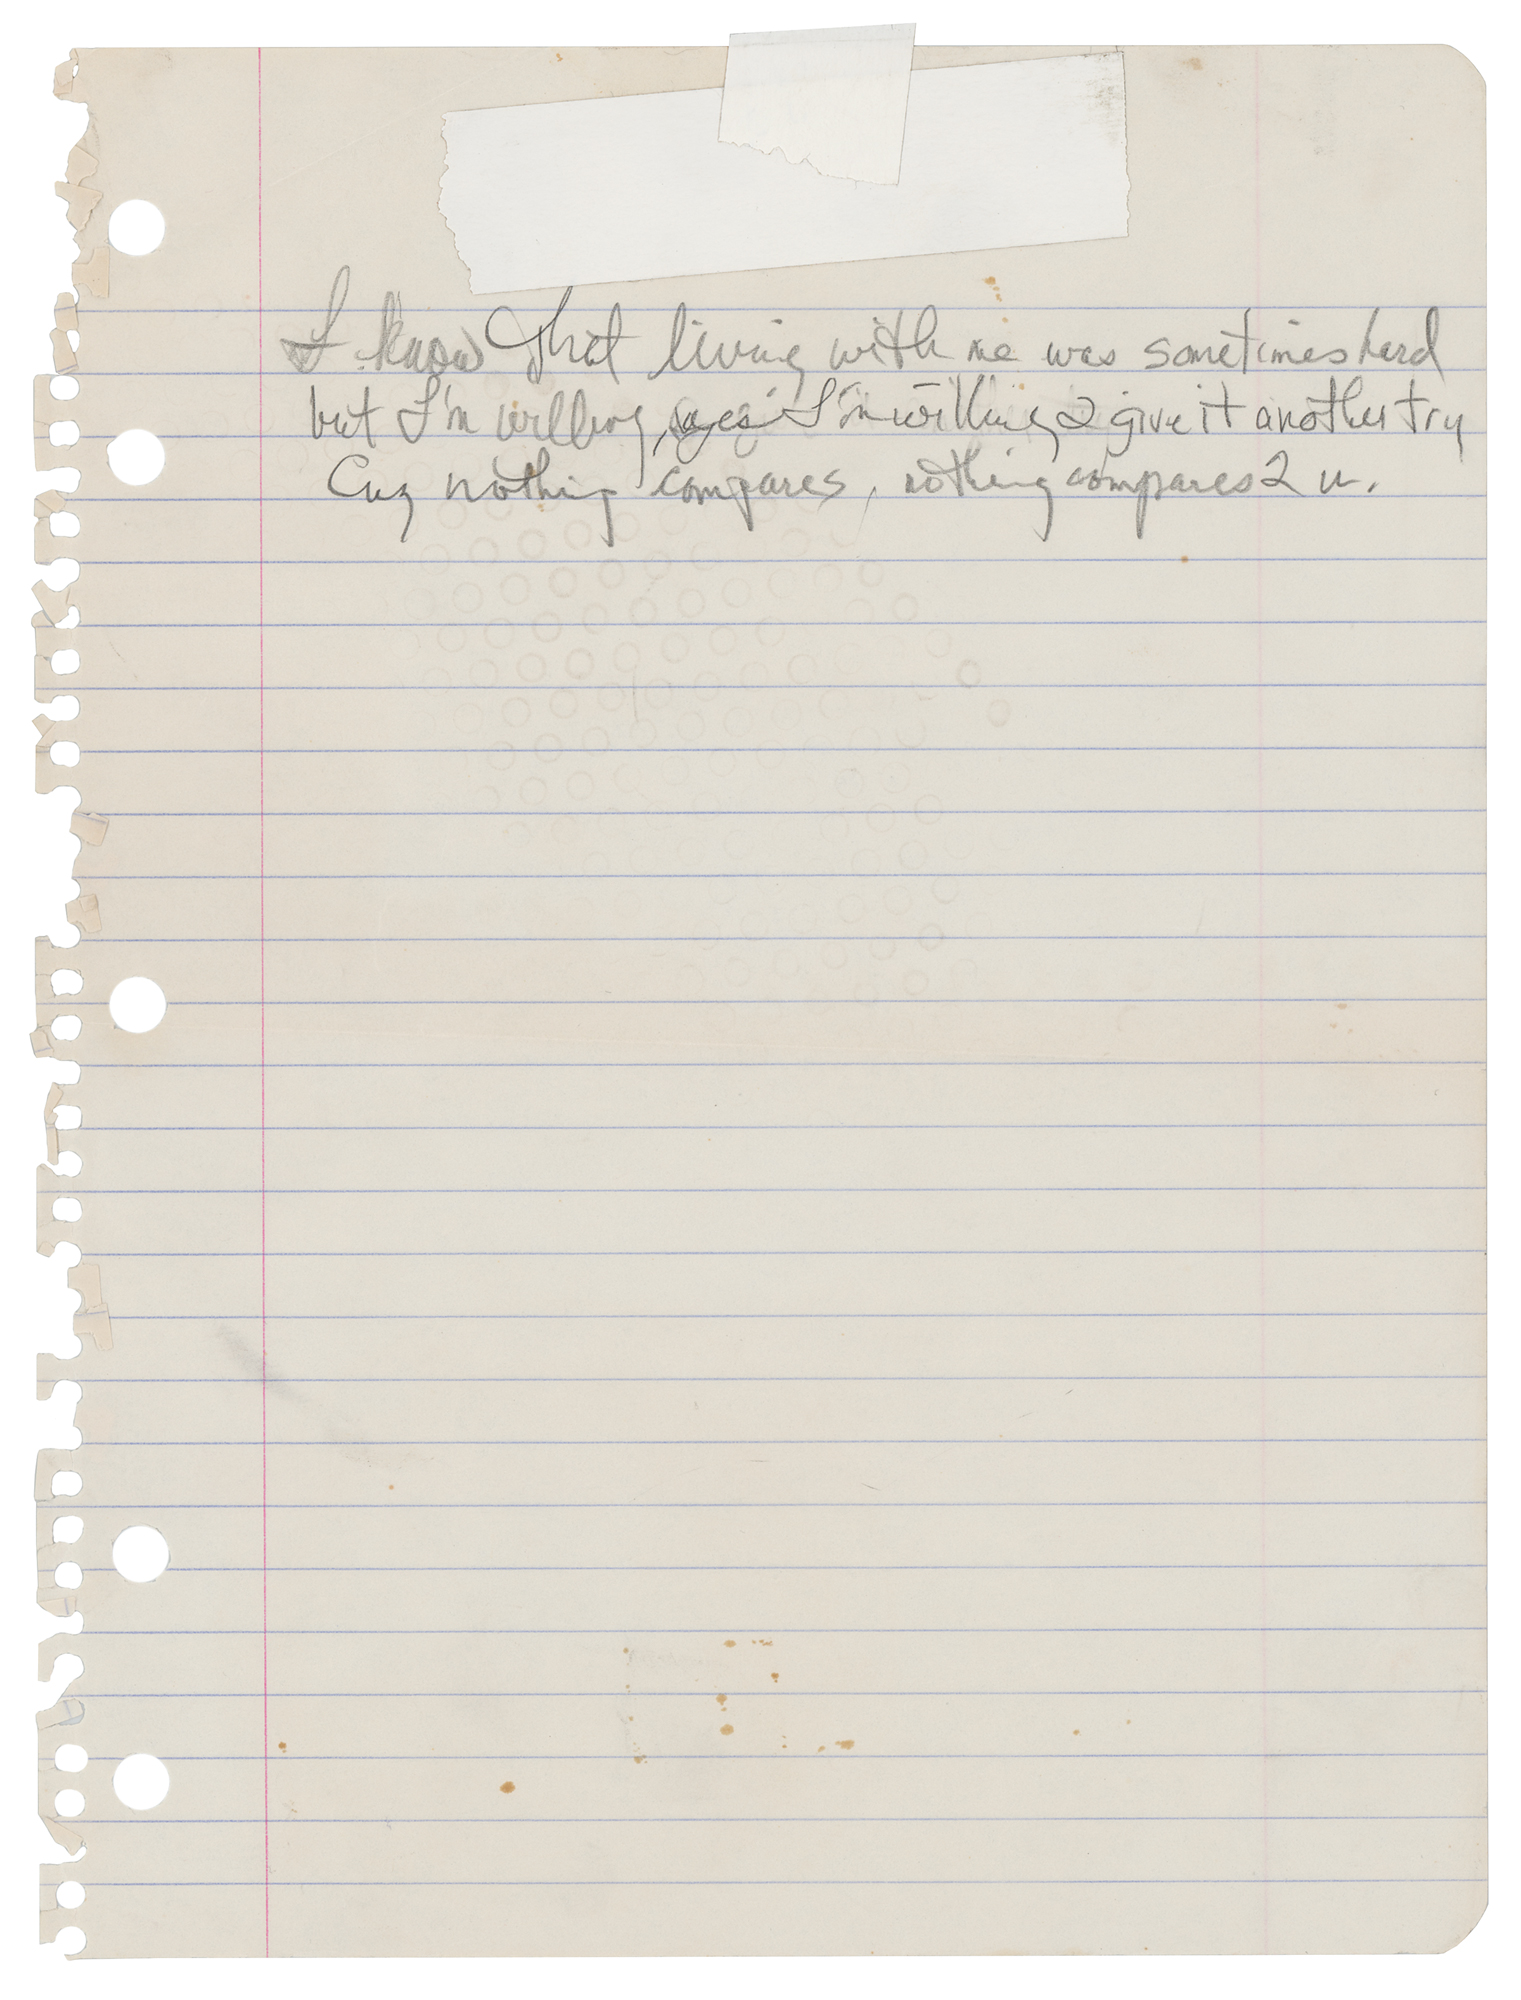 I know that living with me was sometimes hard
but I'm willing, yes I'm willing 2 give it another try
Cuz nothing compares, nothing compares 2 u.